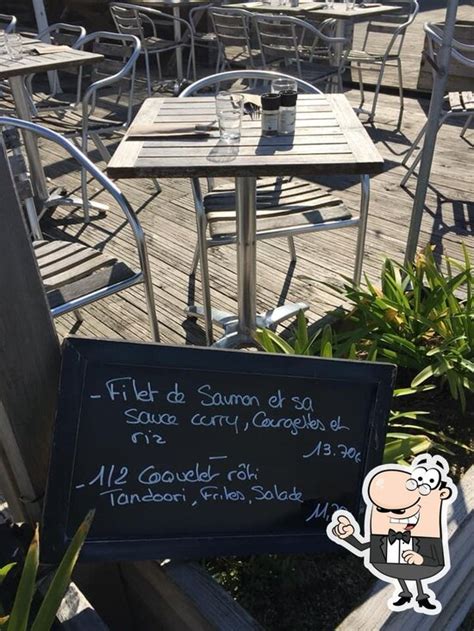 - Filet de Saumon et sa
sauce curry, Courgettes et
riz
13.70€
- 1/2 Coquelet rôti
Tandoori, Frites, Salade